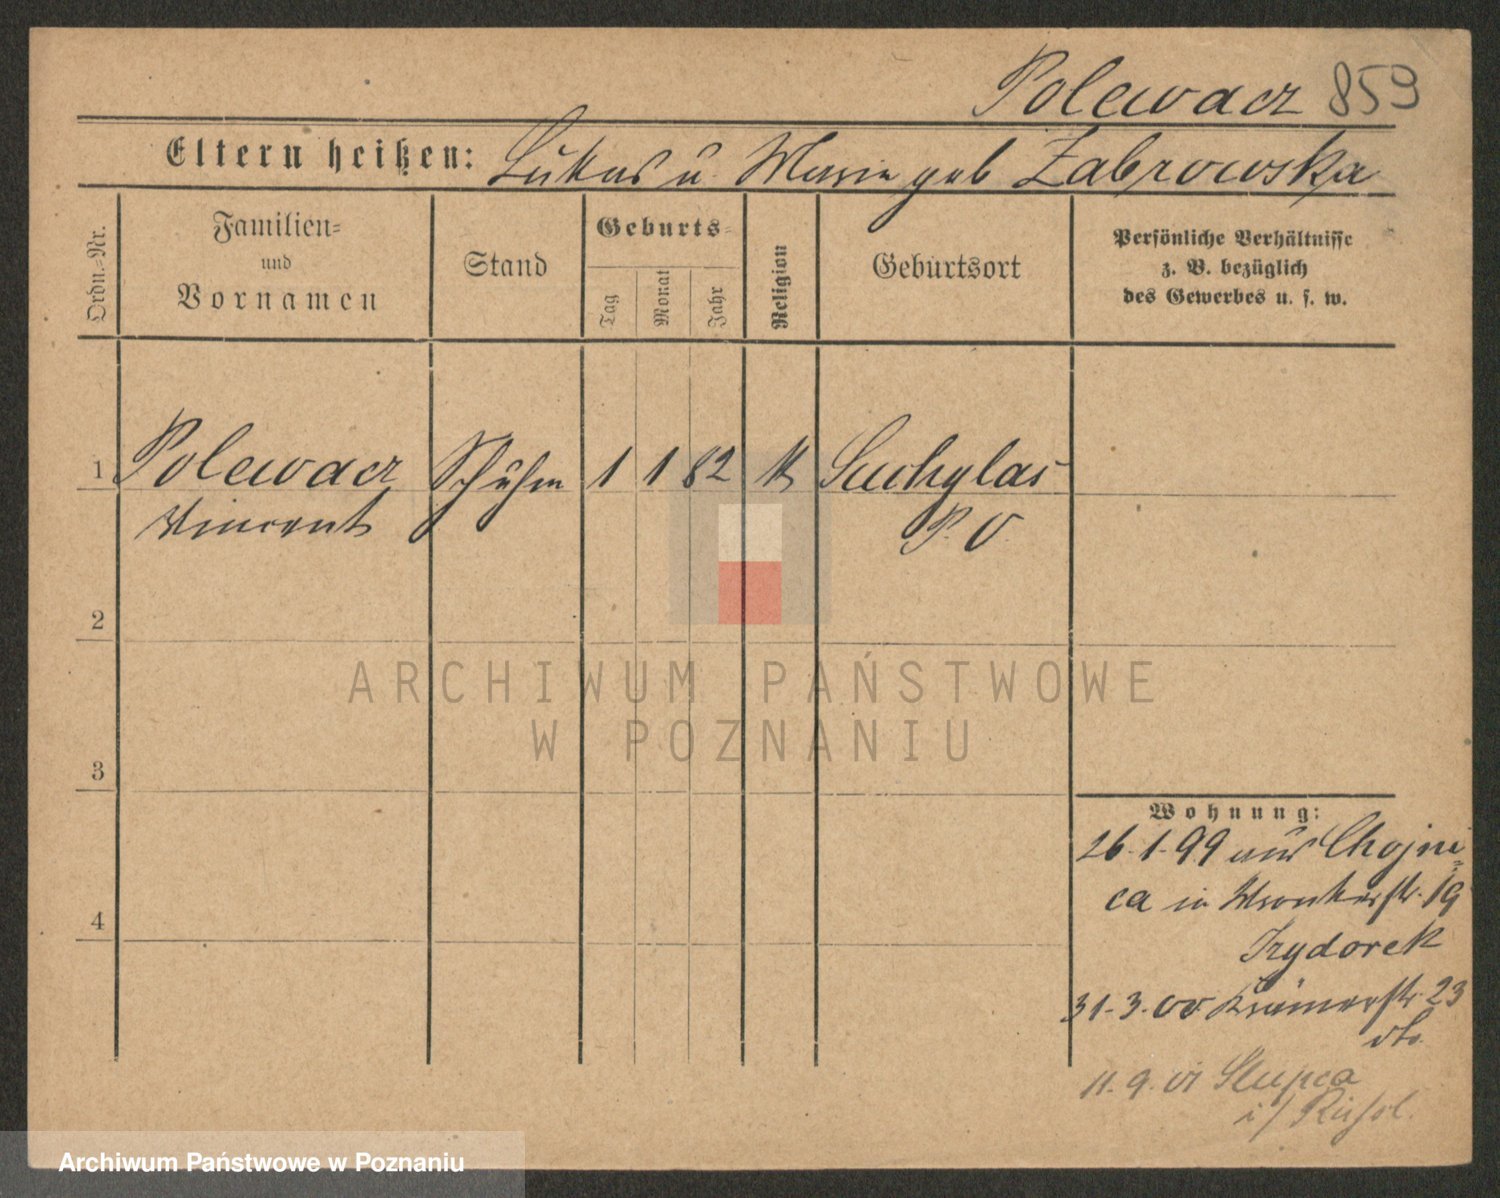 Polewacz 859
Eltern heißen: Lukas u. Marie geb Zabrowska
Ordn.-Nr.
Familien-
und
Vornamen
Stand
Geburts-
Tag
Monat
Jahr
Religion
Geburtsort
Persönliche Verhältnisse
z. B. bezüglich
des Gewerbes u. s. w.
1 Polewacz Schuhm 1 1 82 K Suchylas
Vincent P. O
2
ARCHIWUM PAŃSTWOWE
W POZNANIU
3
Wohnung:
26.1.99 aus Chojni-
ca in Wronkerstr. 19
Izydorek
31.3.00 Krämerstr. 23
dto.
4
11.9.01 Slupca
i/
Archiwum Państwowe w Poznaniu